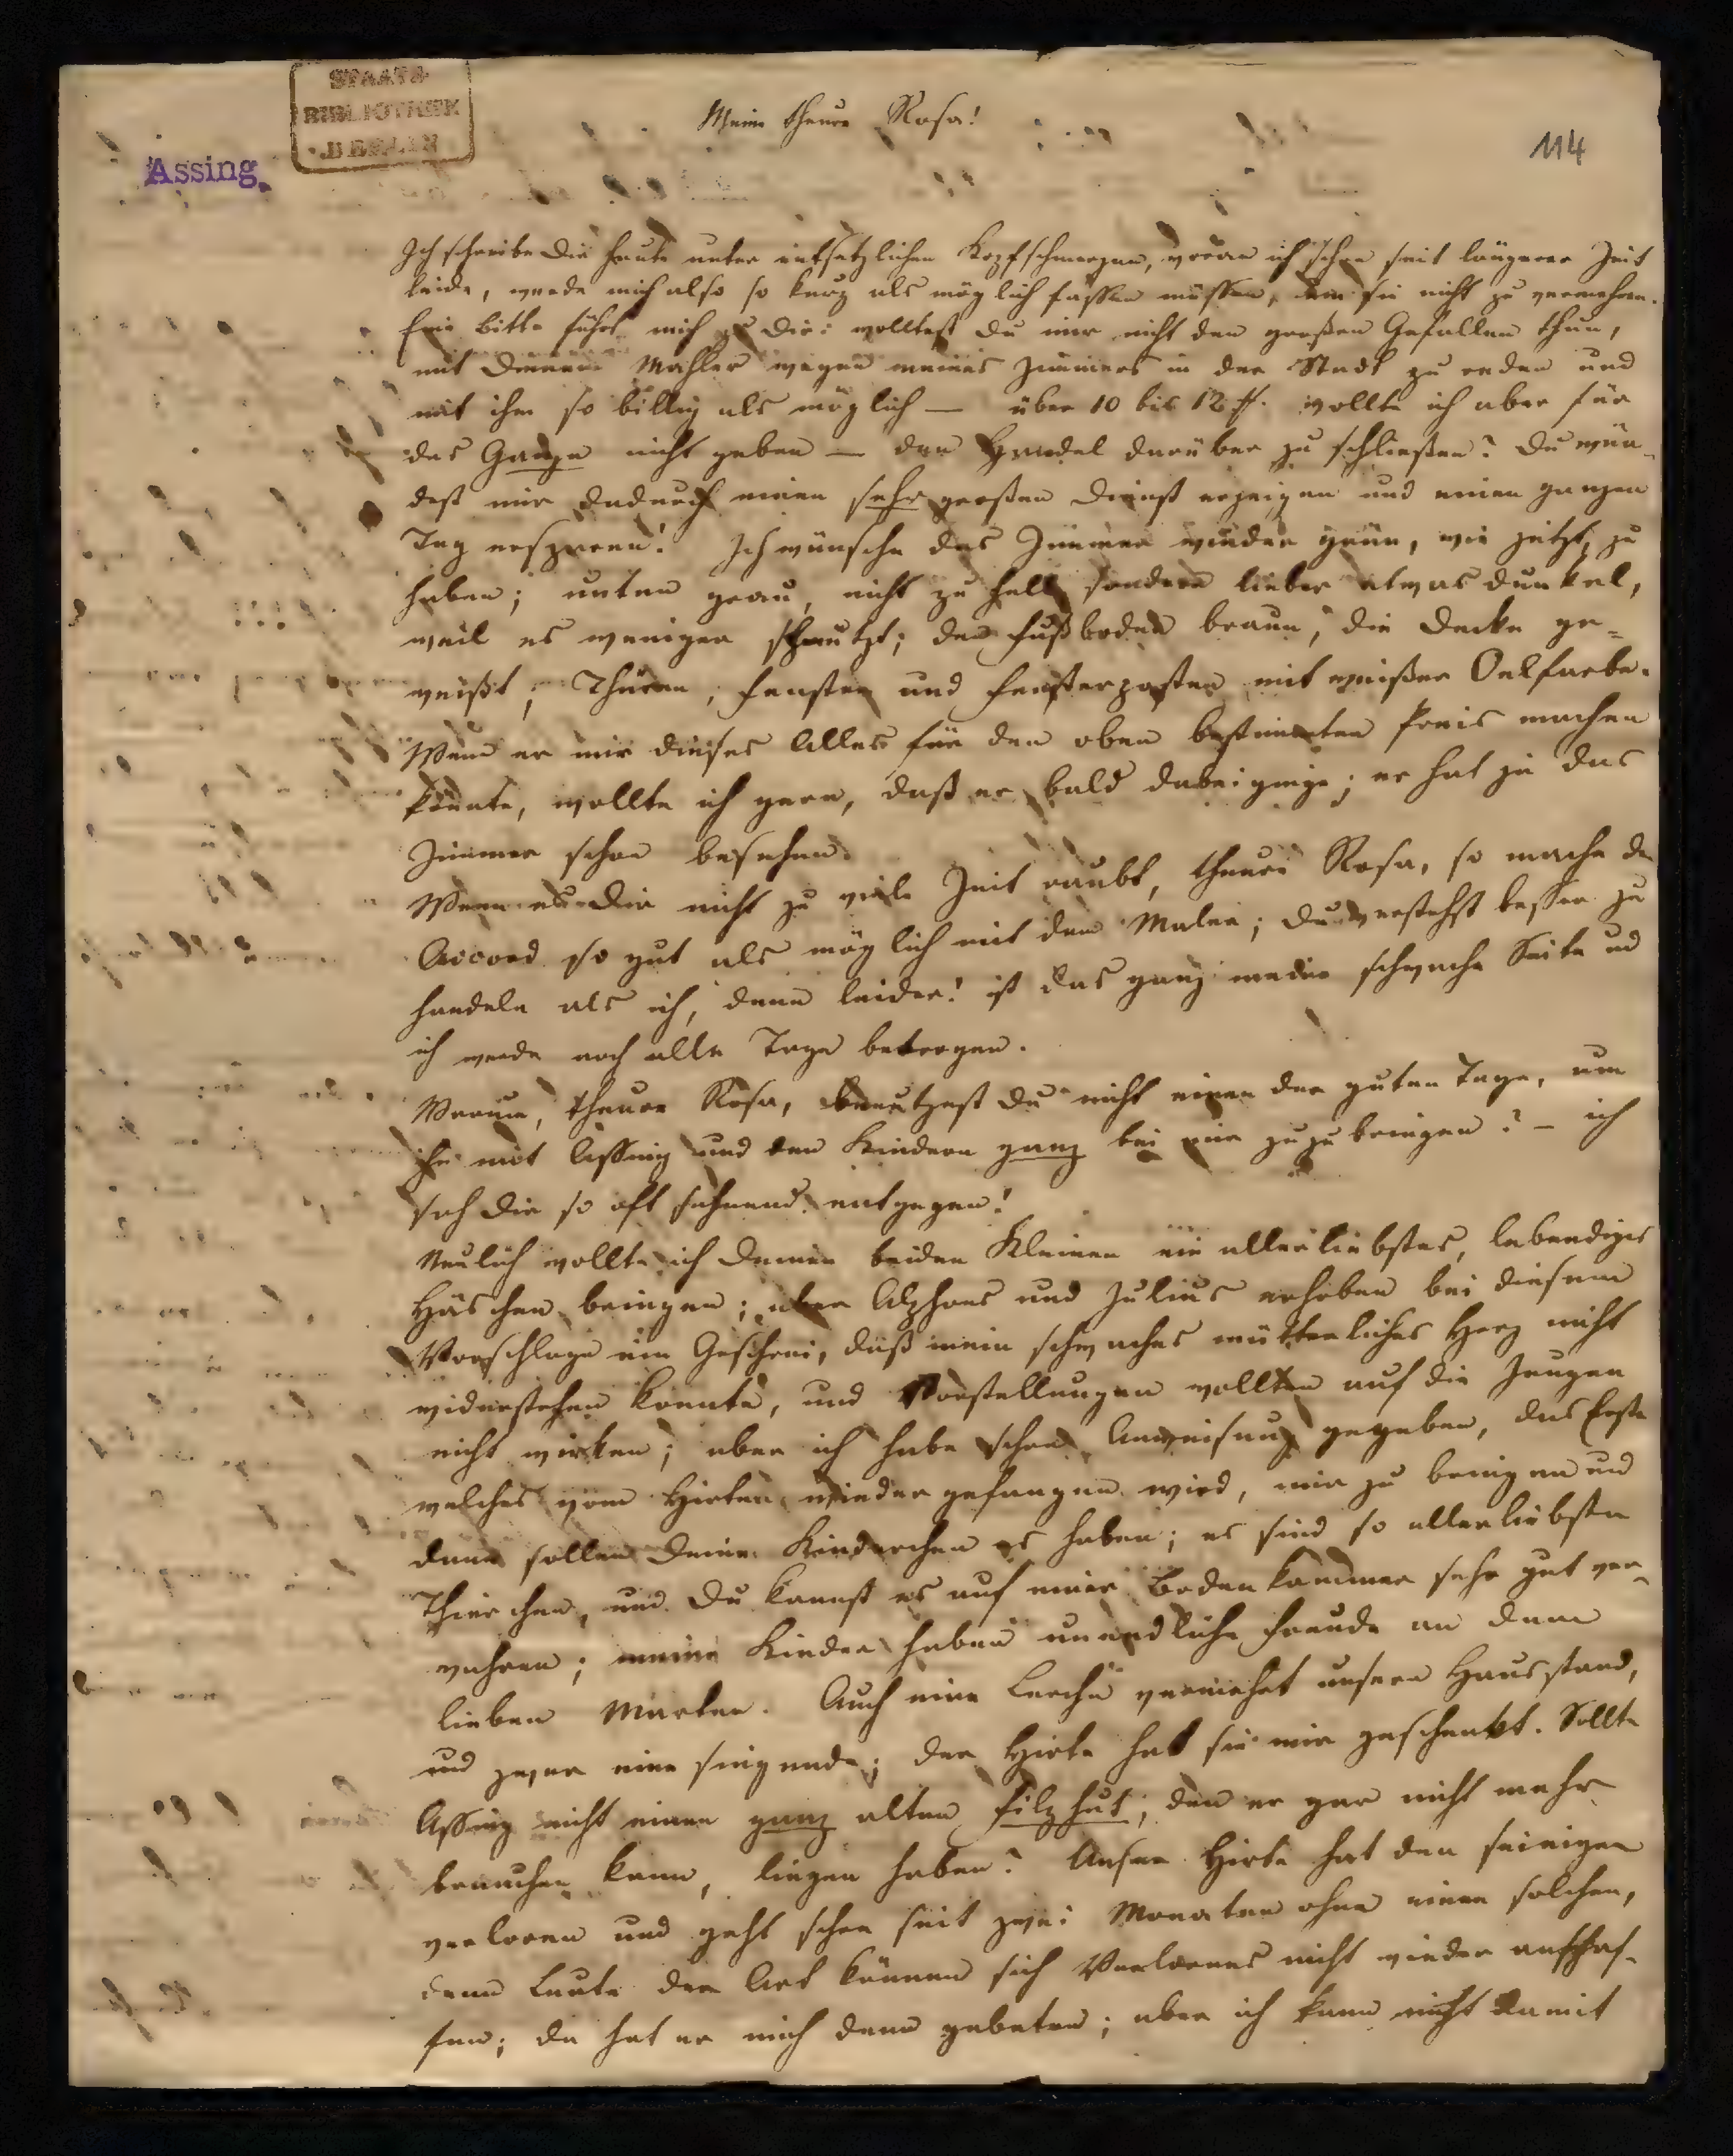 STAATS-
BIBLIOTHEK
BERLIN
Assing.
114
Meine theure Rosa!
Ich schreibe Dir heute unter entsetzlichen Kopfschmerzen, woran ich schon seit längerer Zeit
leide, werde mich also so kurz als möglich fassen müssen, um sie nicht zu vermehren.
Eine Bitte führt mich zu Dir: wolltest Du mir nicht den großen Gefallen thun,
mit Deinem Mahler wegen meines Zimmers in der Stadt zu reden und
mit ihm so billig als möglich — über 10 bis 12 wollte ich aber für
das Ganze nicht geben — den Handel darüber zu schließen? Du wür-
dest mir dadurch einen sehr großen Dienst erzeigen und einen ganzen
Tag ersparen! Ich wünsche das Zimmer wieder grün, wie jetzt, zu
haben; unten grau, nicht zu hell sondern lieber etwas dunkel,
weil es weniger schmutzt; den Fußboden braun, die Decke ge-
weißt; Thüren, Fenster und Fensterposten mit weißer Oelfarbe.
Wenn er mir dieses Alles für den oben bestimmten Preis machen
könnte, wollte ich gern, daß er bald dabei ginge; er hat ja das
Zimmer schon besehen.
Wenn es Dir nicht zu viele Zeit raubt, theure Rosa, so mache den
Accord so gut als möglich mit dem Maler; Du verstehst besser zu
handeln als ich, denn leider! ist das ganz meine schwache Seite und
ich werde noch alle Tage betrogen.
Warum, theure Rosa, benutzest Du nicht einen der guten Tage, um
ihn mit Assing und den Kindern ganz bei mir zuzubringen? — ich
sah Dir so oft sehnend entgegen!
Neulich wollte ich Deinen beiden Kleinen ein allerliebstes, lebendiges
Häschen bringen; aber Alphons und Julius erhoben bei diesem
Vorschlage ein Geschrei, daß mein schwaches mütterliches Herz nicht
widerstehen konnte, und Vorstellungen wollten auf die Jungen
nicht wirken; aber ich habe schon Anweisung gegeben, das Erste
welches vom Hirten wieder gefangen wird, mir zu bringen und
dann sollen Deine Kinderchen es haben; es sind so allerliebste
Thierchen, und Du kannst es auf einer Bodenkammer sehr gut ver-
wahren; meine Kinder haben unendliche Freude an dem
lieben Marten. Auch eine Lerche vermehrt unsern Hausstand,
und zwar eine singende; der Hirte hat sie mir geschenkt. Sollte
Assing nicht einen ganz alten Filzhut, den er gar nicht mehr
brauchen kann, liegen haben? Unser Hirte hat den seinigen
verloren und geht schon seit zwei Monaten ohne einen solchen,
denn Leute der Art können sich Verlorenes nicht wieder anschaf-
fen; da hat er mich denn gebeten; aber ich kann nicht damit